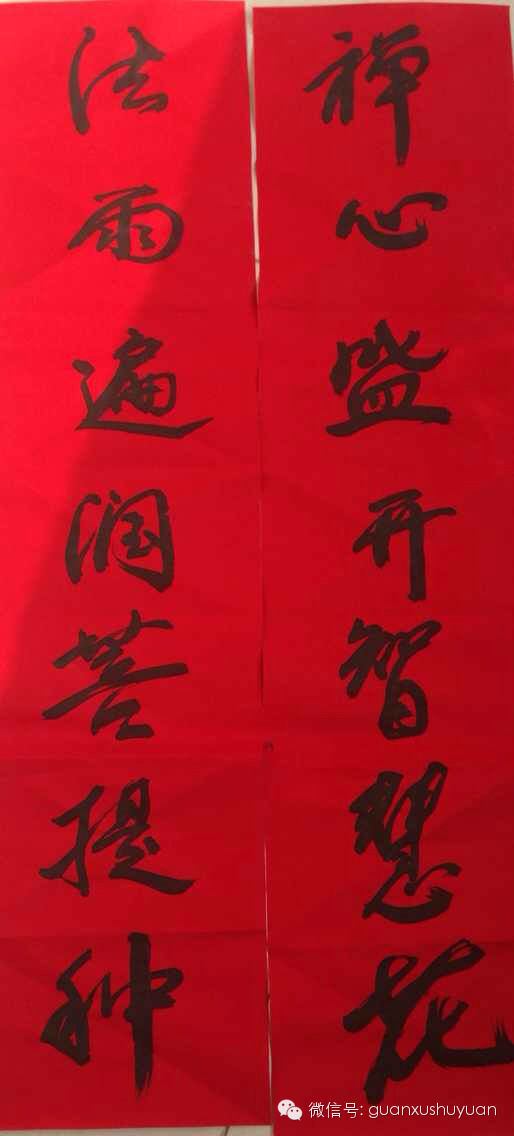 禅心盛开智慧花
法雨遍润菩提种
微信号: guanxushuyuan